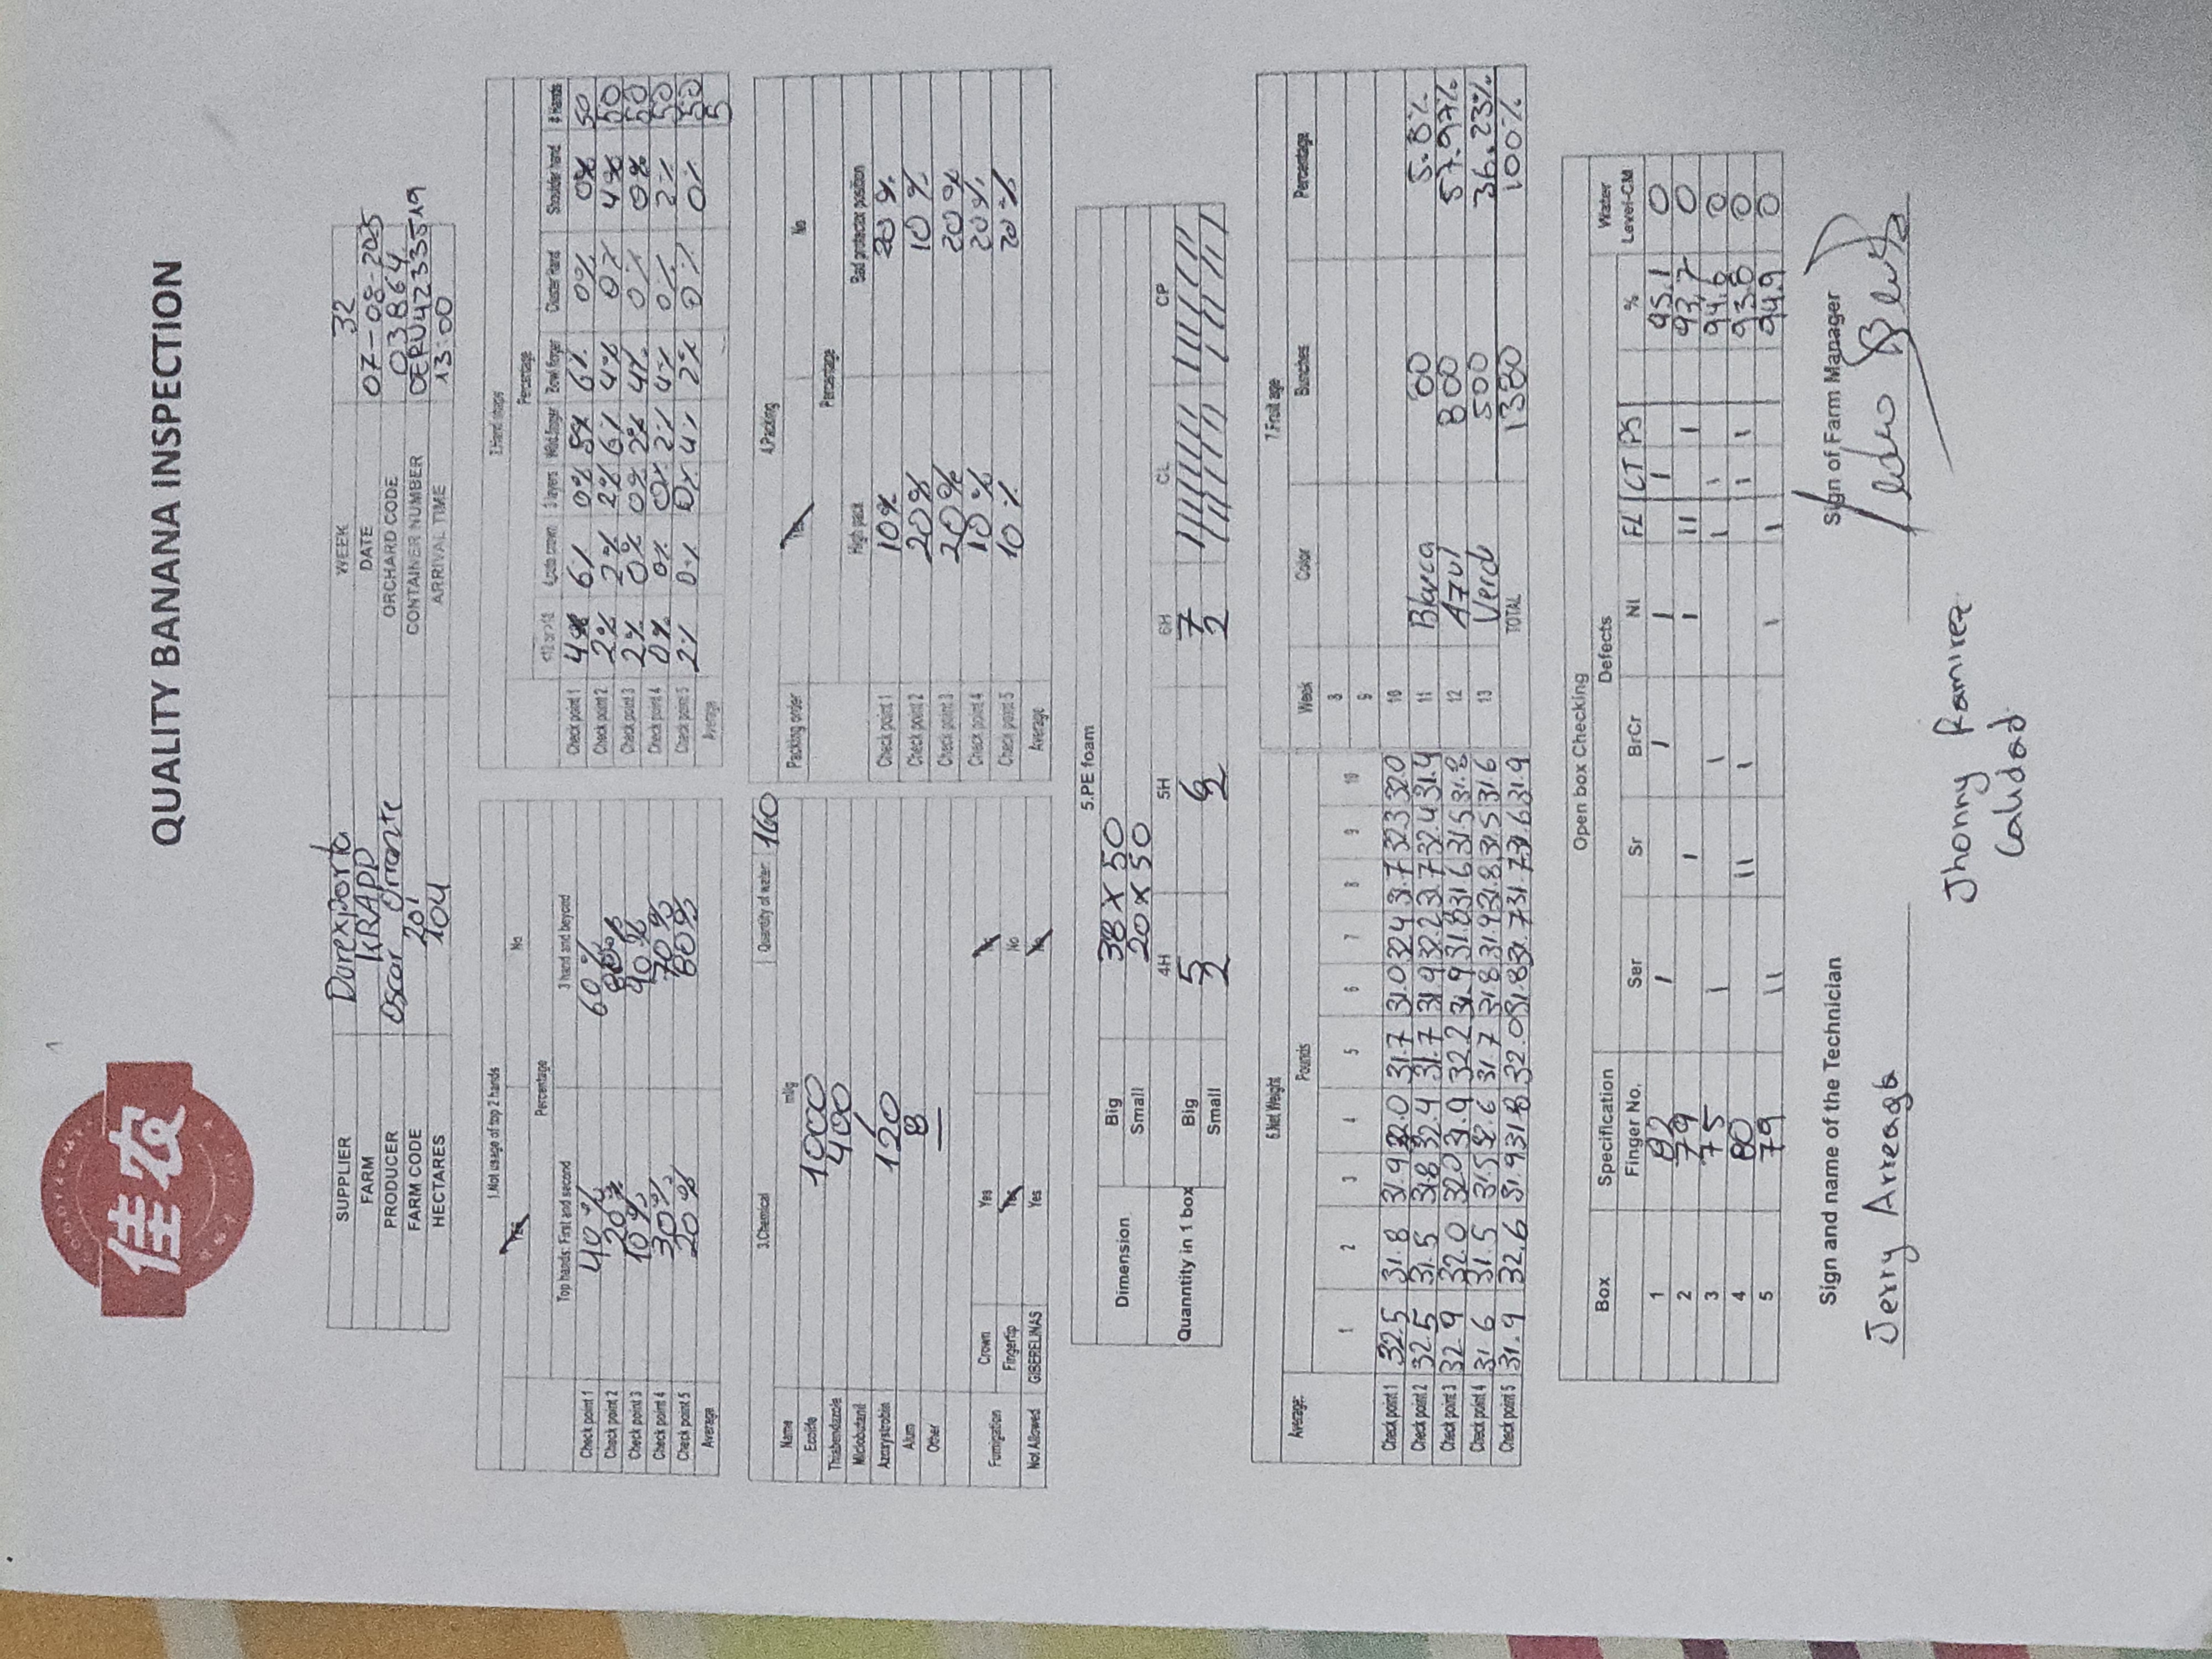 佳农
QUALITY BANANA INSPECTION
SUPPLIER Durexporta WEEK 32
FARM KRAPP DATE 07-08-2025
PRODUCER Oscar Orrante ORCHARD CODE 03864
FARM CODE 201 CONTAINER NUMBER OERU4233519
HECTARES 104 ARRIVAL TIME 13:00
1.Not usage of top 2 hands
YES No
Percentage
Top hands: First and second 3 hand and beyond
Check point 1 40% 60%
Check point 2 20% 80%
Check point 3 10% 90%
Check point 4 30% 70%
Check point 5 20% 80%
Average
2.Hand shape
Percentage
4.puto crown 3 layers Wild finger Bowl finger Cluster Hand Shoulder hand # Hands
Check point 1 4% 6% 0% 8% 6% 0% 0% 50
Check point 2 2% 2% 2% 6% 4% 0% 4% 50
Check point 3 2% 0% 0% 2% 4% 0% 0% 50
Check point 4 0% 0% 0% 2% 4% 0% 2% 50
Check point 5 2% 0% 0% 4% 2% 0% 0% 50
Average 5
3.Chemical Quantity of water: 160
Name ml/g
Ecolife 1000
Thiabendazole 400
Miclobutanil /
Azoxystrobin 120
Alum 8
Other —
Fumigation Crown Yes No
Fingertip Yes No
Not Allowed GIBERELINAS Yes No
4.Packing
Packing order Yes No
Percentage
High pack Bad protector position
Check point 1 10% 20%
Check point 2 20% 10%
Check point 3 20% 20%
Check point 4 10% 20%
Check point 5 10% 20%
Average
5.PE foam
Dimension Big 38 x 50
Small 20 x 50
4H 5H 6H CL CP
Quanntity in 1 box Big 5 6 7
Small 2 2 2
6.Net Weight
Average: Pounds
1 2 3 4 5 6 7 8 9 10
Check point 1 32.5 31.8 31.9 32.0 31.7 31.0 32.4 31.7 32.3 32.0
Check point 2 32.5 31.5 31.8 32.4 31.7 31.9 32.2 31.7 32.4 31.4
Check point 3 32.9 32.0 32.0 31.9 32.2 31.9 31.8 31.6 31.5 31.8
Check point 4 31.6 31.5 31.5 32.6 31.7 31.8 31.9 31.8 31.5 31.6
Check point 5 31.9 32.6 31.9 31.8 32.0 31.8 31.7 31.7 31.6 31.9
7.Fruit age
Week Color Bunches Percentage
8
9
10
11 Blanca 80 5.8%
12 Azul 800 57.97%
13 Verde 500 36.23%
TOTAL 1380 100%
Open box Checking
Box Specification Defects Water
Finger No. Ser Sr BrCr NI FL CT PS % Level-CM
1 82 I I I I 95.1 0
2 79 I I II I 93.7 0
3 75 I I I I 94.6 0
4 80 II I I I 93.8 0
5 79 II I I 94.9 0
Sign and name of the Technician Sign of Farm Manager
Jerry Arreaga
Jhonny Ramirez
Calidad